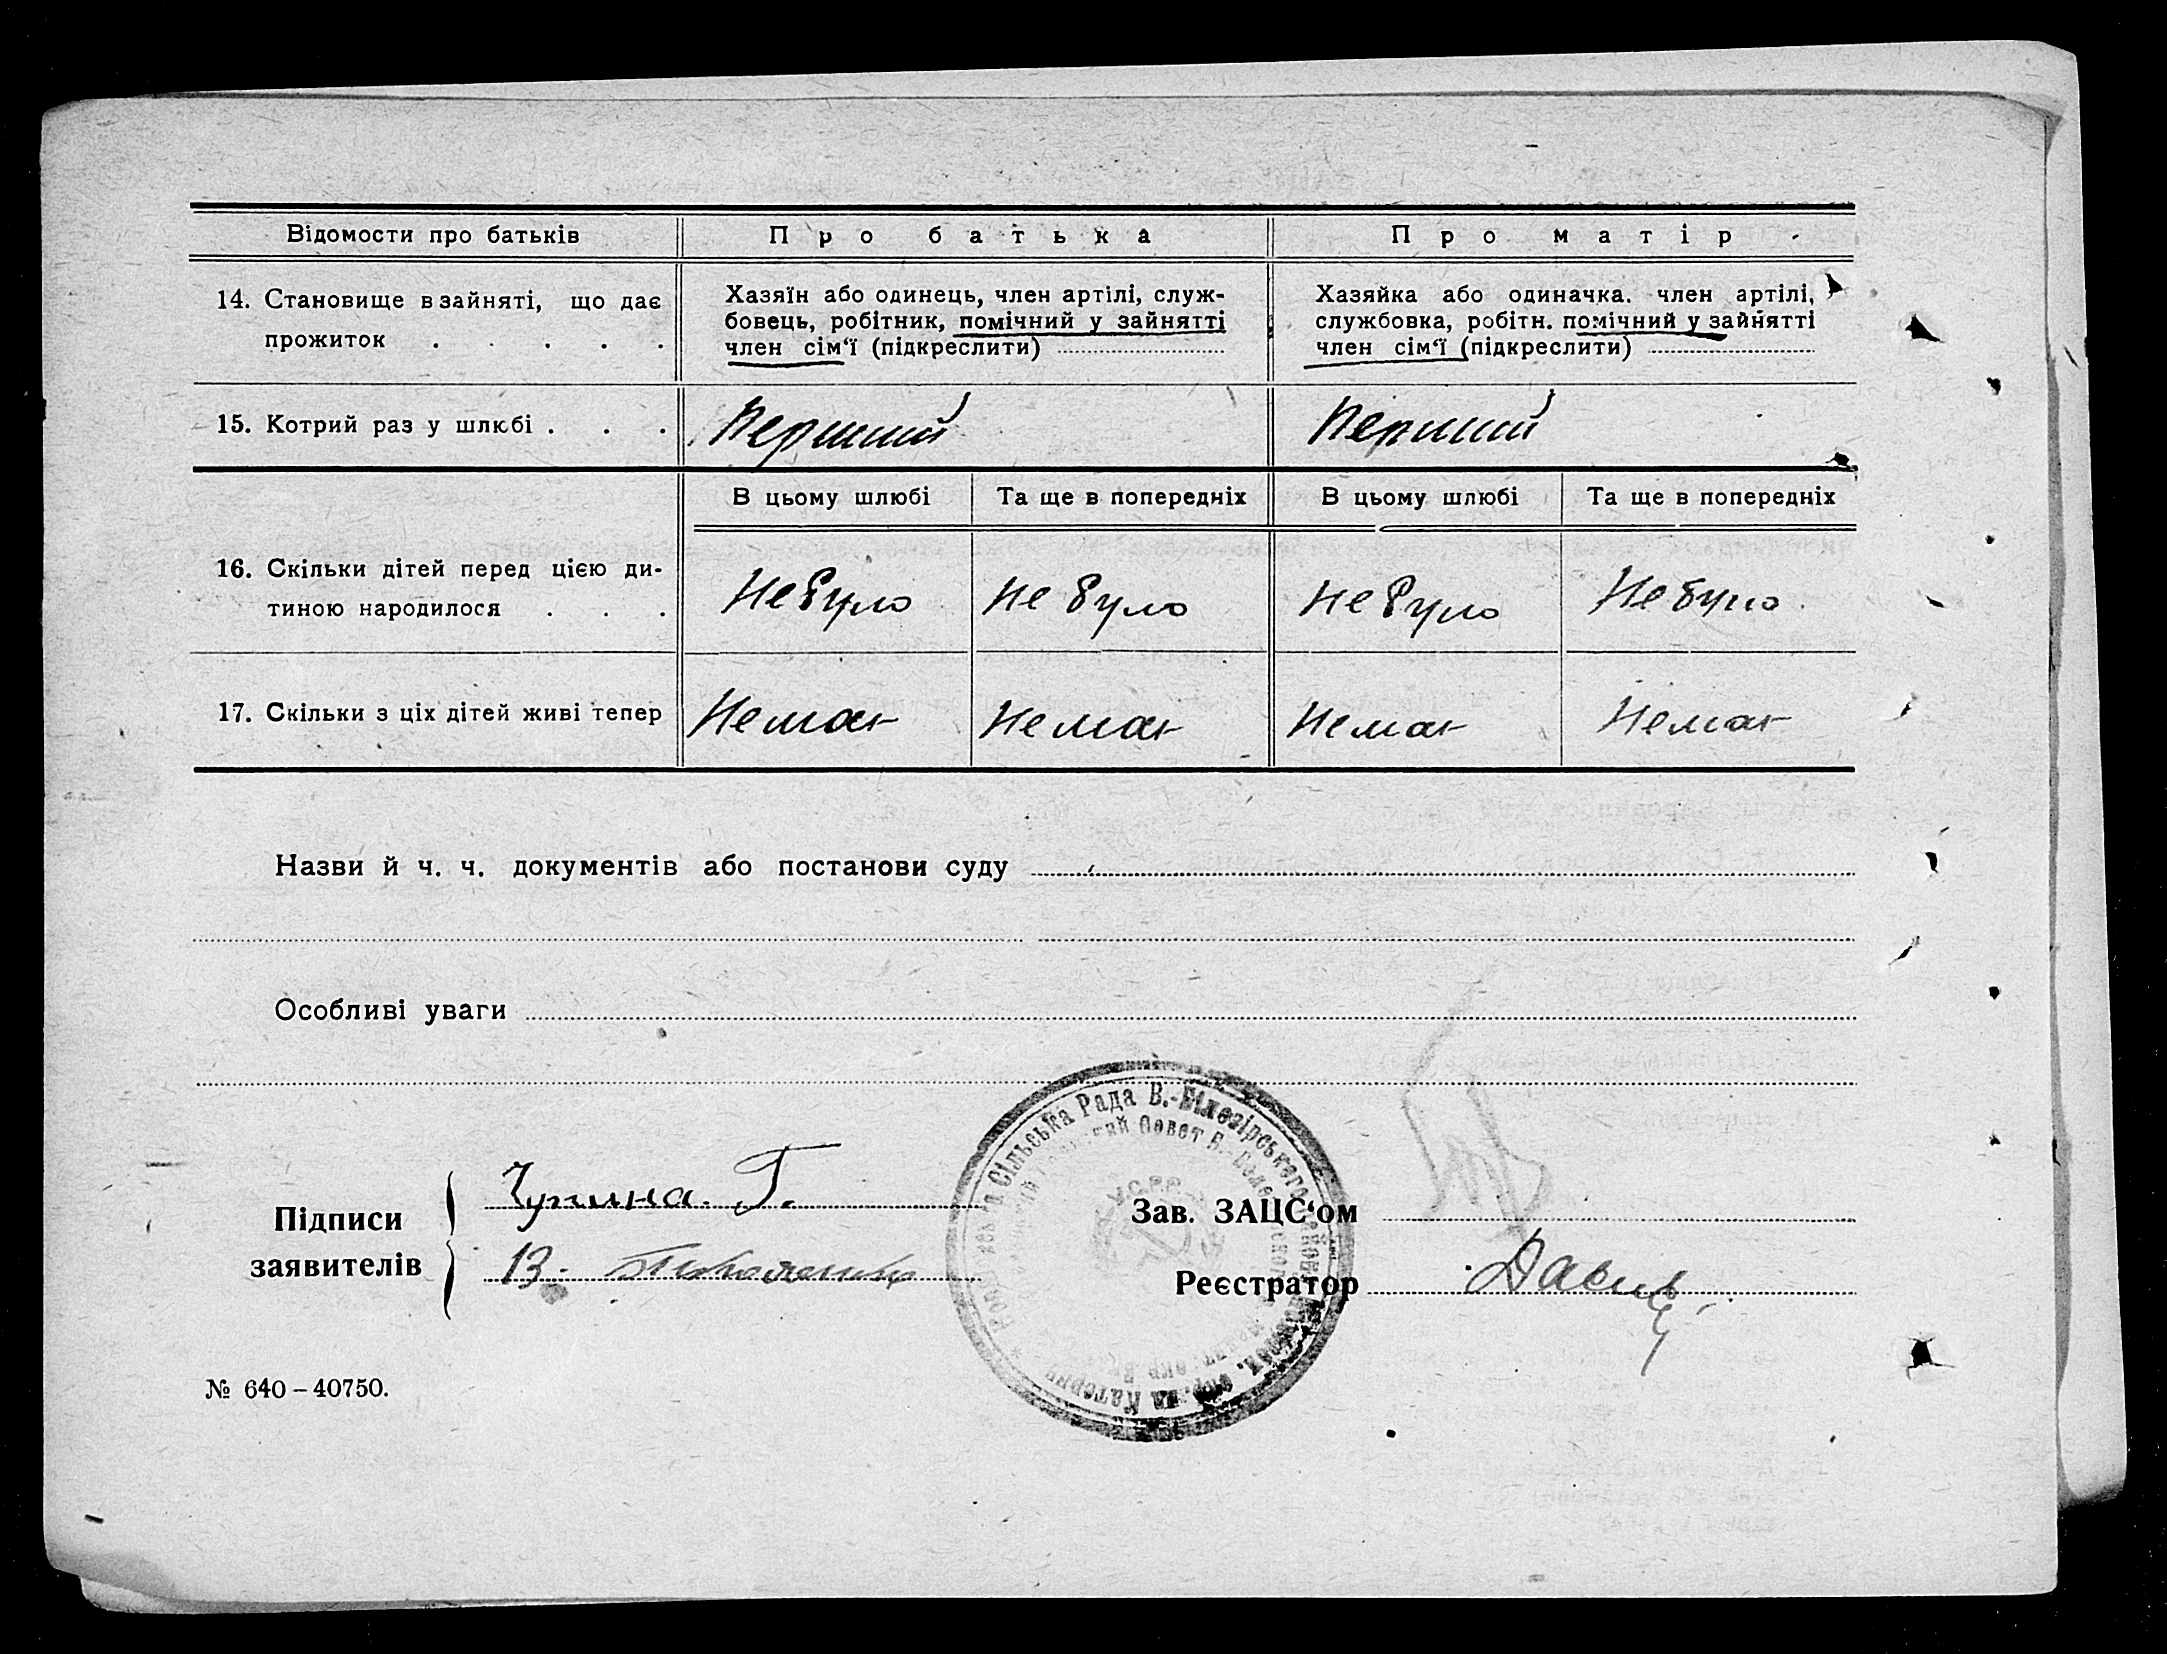 Відомости про батьків Про батька Про матір
14. Становище в зайняті, що дає прожиток . . . . .
Хазяїн або одинець, член артілі, служ-
бовець, робітник, помічний у зайнятті
член сім'ї (підкреслити)
Хазяйка або одиначка. член артілі,
службовка, робітн. помічний у зайнятті
член сім'ї (підкреслити)
15. Котрий раз у шлюбі . . . Перший Перший
В цьому шлюбі Та ще в попередніх В цьому шлюбі Та ще в попередніх
16. Скільки дітей перед цією ди-
тиною народилося . . .
Не було Не було Не було Не було
17. Скільки з ціх дітей живі тепер Немає Немає Немає Немає
Назви й ч. ч. документів або постанови суду
Особливі уваги
Сільська Рада В.-Білозірського
Совет В.-Белозерского
У.С.Р.Р.
Підписи
заявителів
Г.
В.
Зав. ЗАЦС'ом
Реєстратор
№ 640–40750.